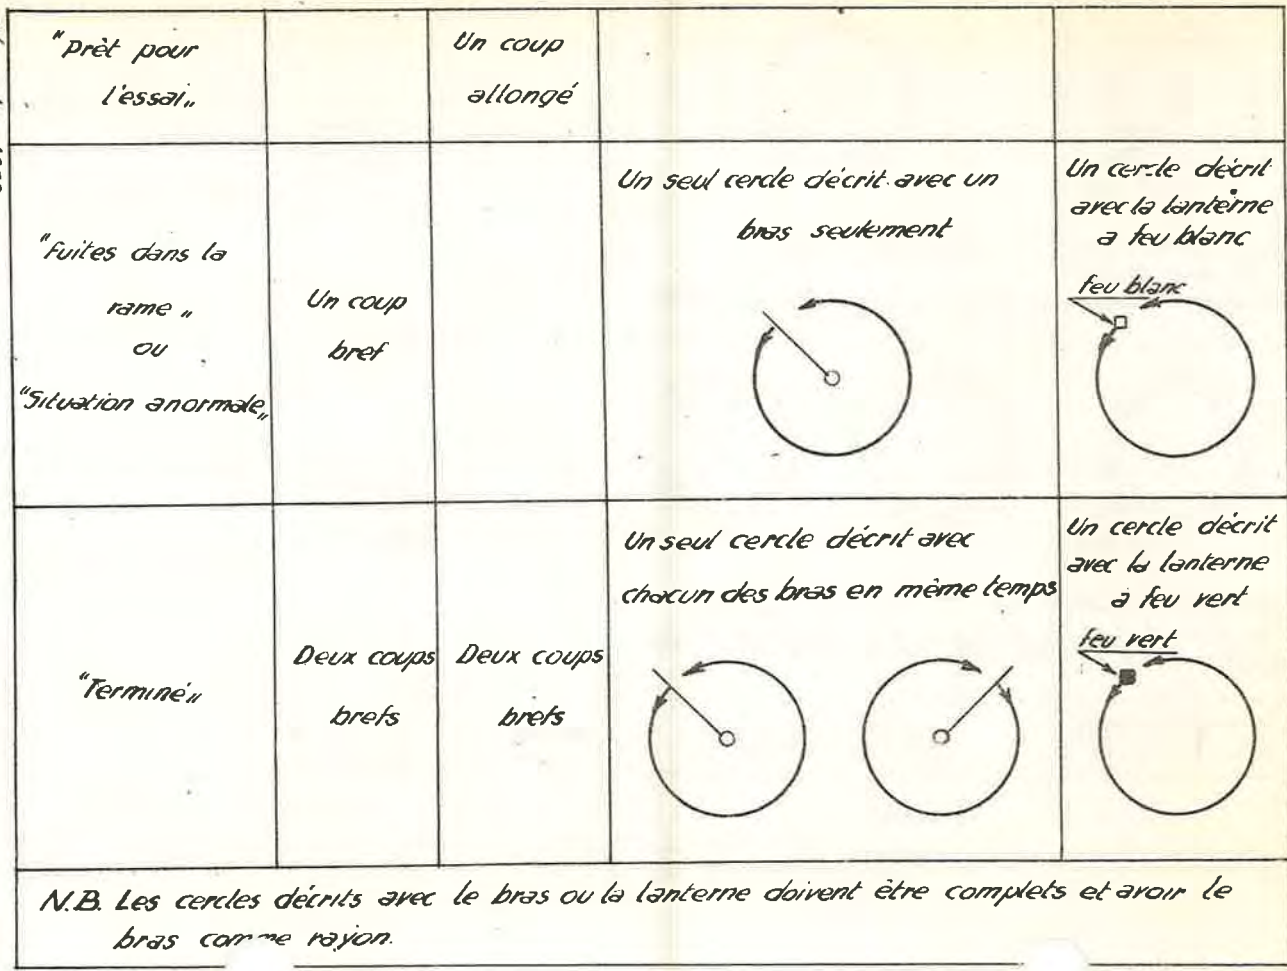 "Prèt pour
l'essai„
Un coup
allongé
"Fuites dans la
rame „
ou
"Situation anormale„
Un coup
bref
Un seul cercle décrit avec un
bras seulement
Un cercle décrit
avec la lantèrne
a feu blanc
feu blanc
"Terminé„
Deux coups
brefs
Deux coups
brefs
Un seul cercle décrit avec
chacun des bras en mème temps
Un cercle décrit
avec la lanterne
à feu vert
feu vert
N.B. Les cercles décrits avec le bras ou la lanterne doivent ètre complets et avoir le
bras comme rayon.